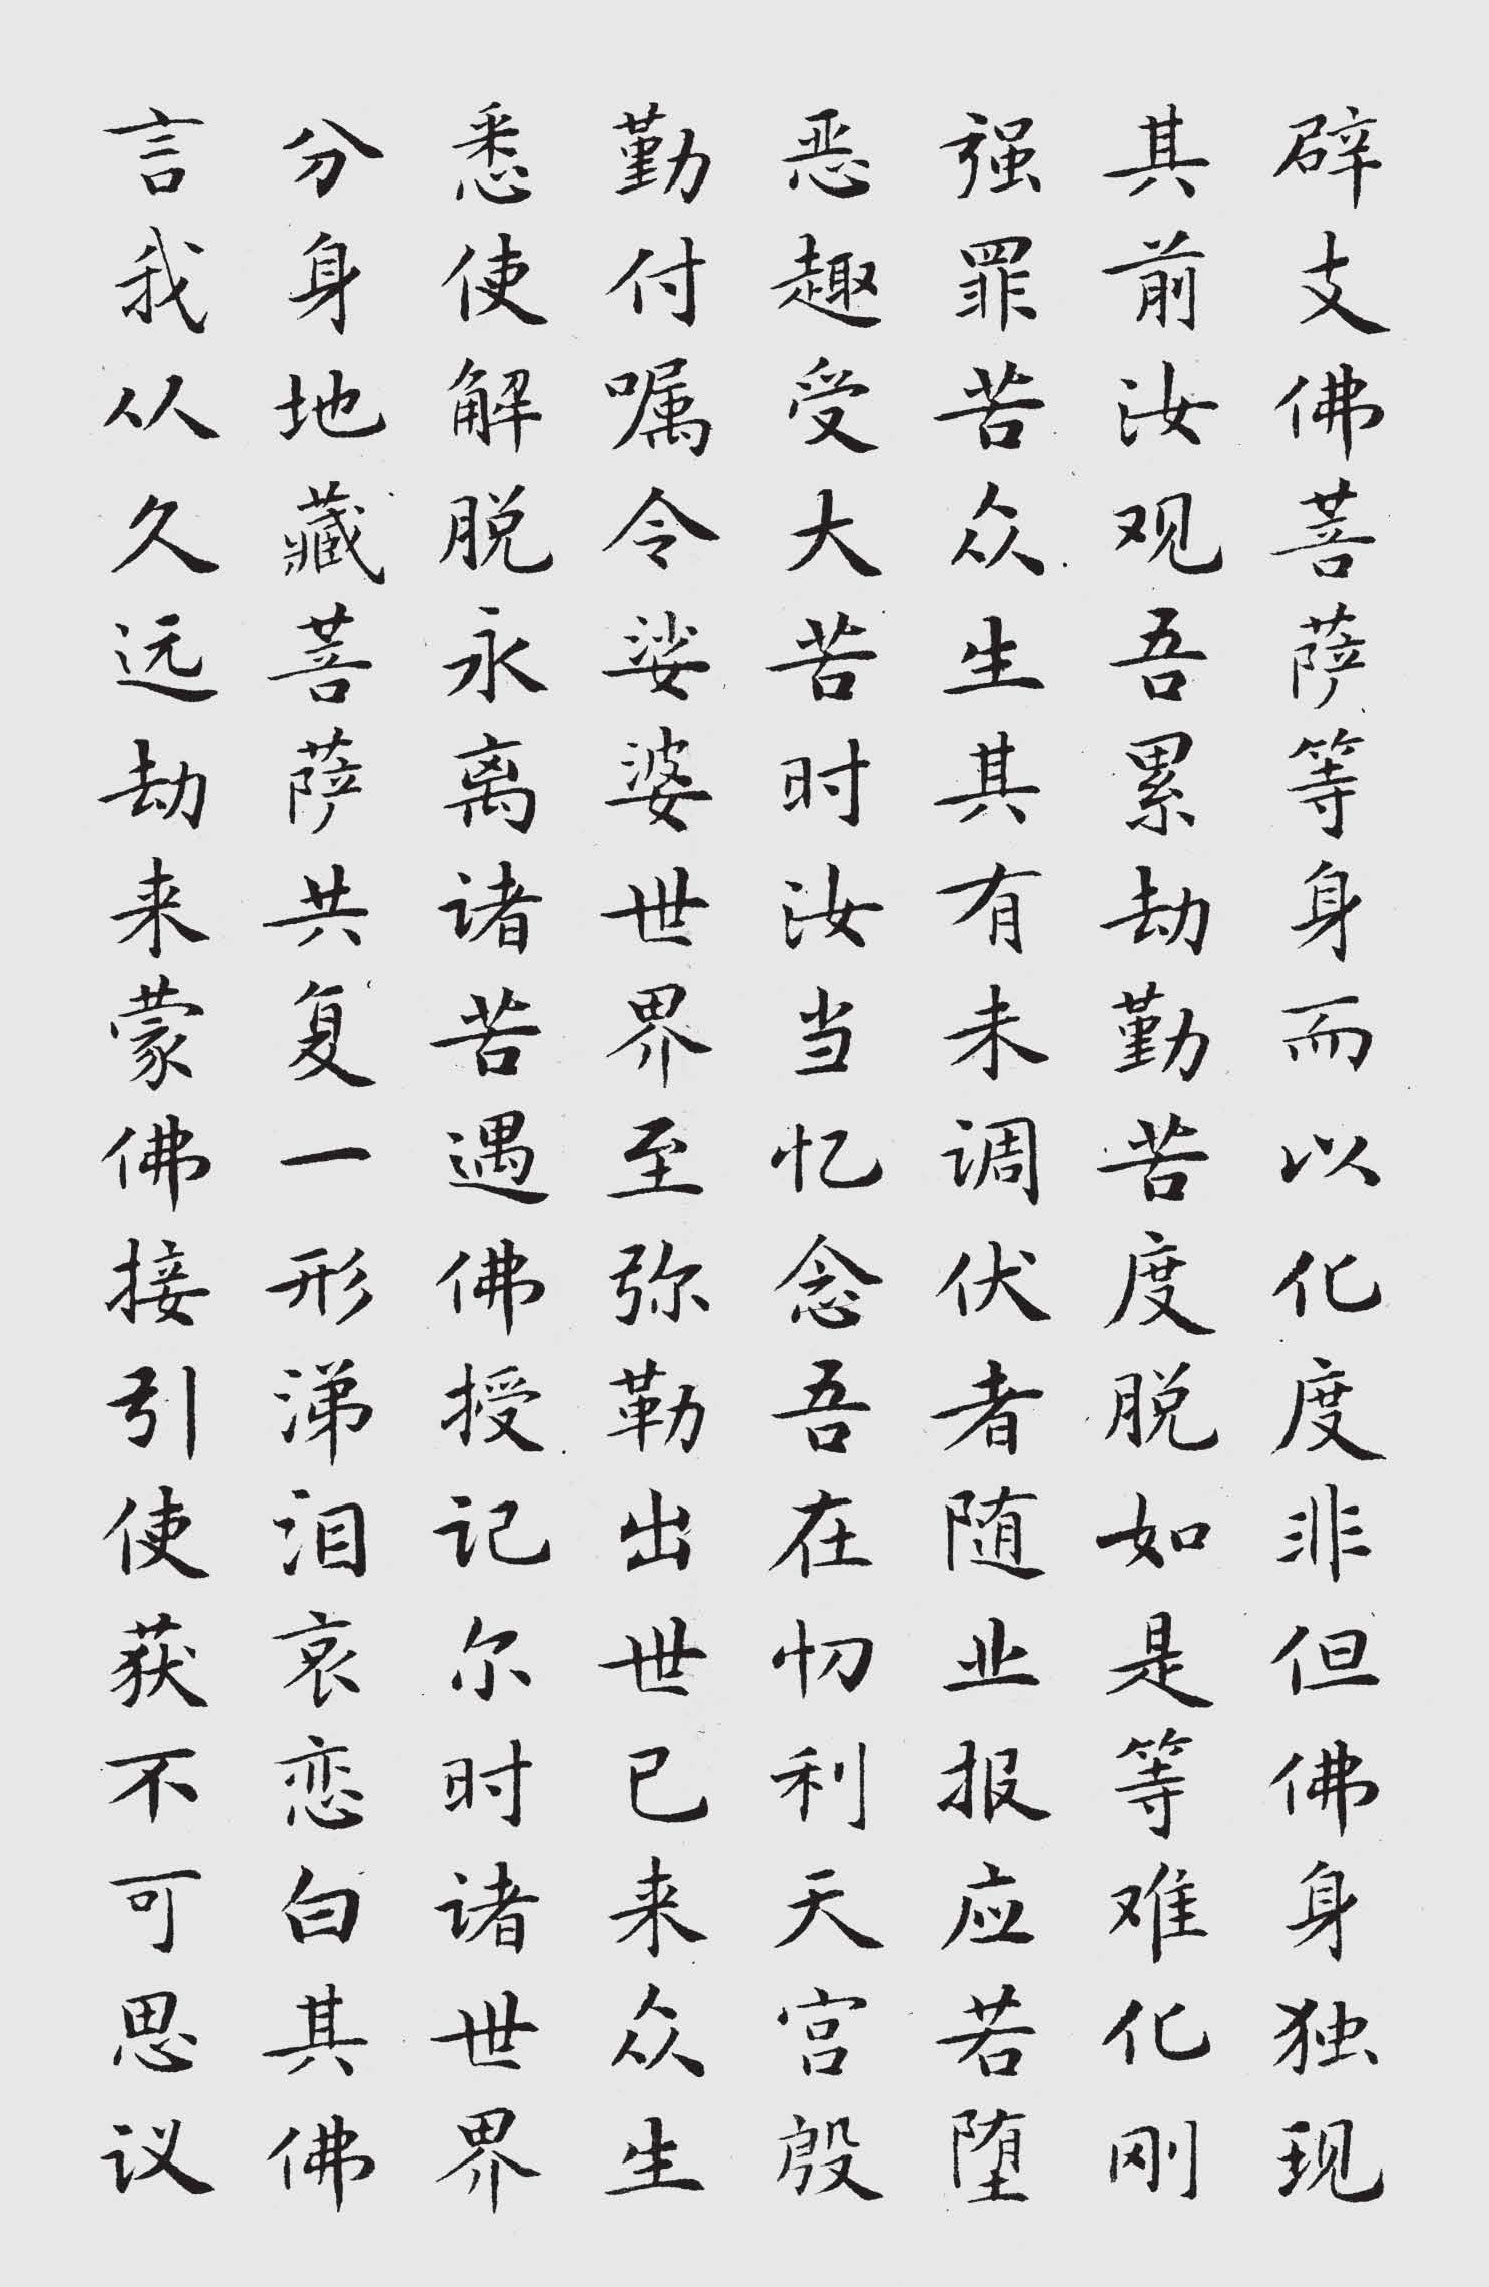 辟支佛菩萨等身而以化度非但佛身独现
其前汝观吾累劫勤苦度脱如是等难化刚
强罪苦众生其有未调伏者随业报应若堕
恶趣受大苦时汝当忆念吾在忉利天宫殷
勤付嘱令娑婆世界至弥勒出世已来众生
悉使解脱永离诸苦遇佛授记尔时诸世界
分身地藏菩萨共复一形涕泪哀恋白其佛
言我从久远劫来蒙佛接引使获不可思议